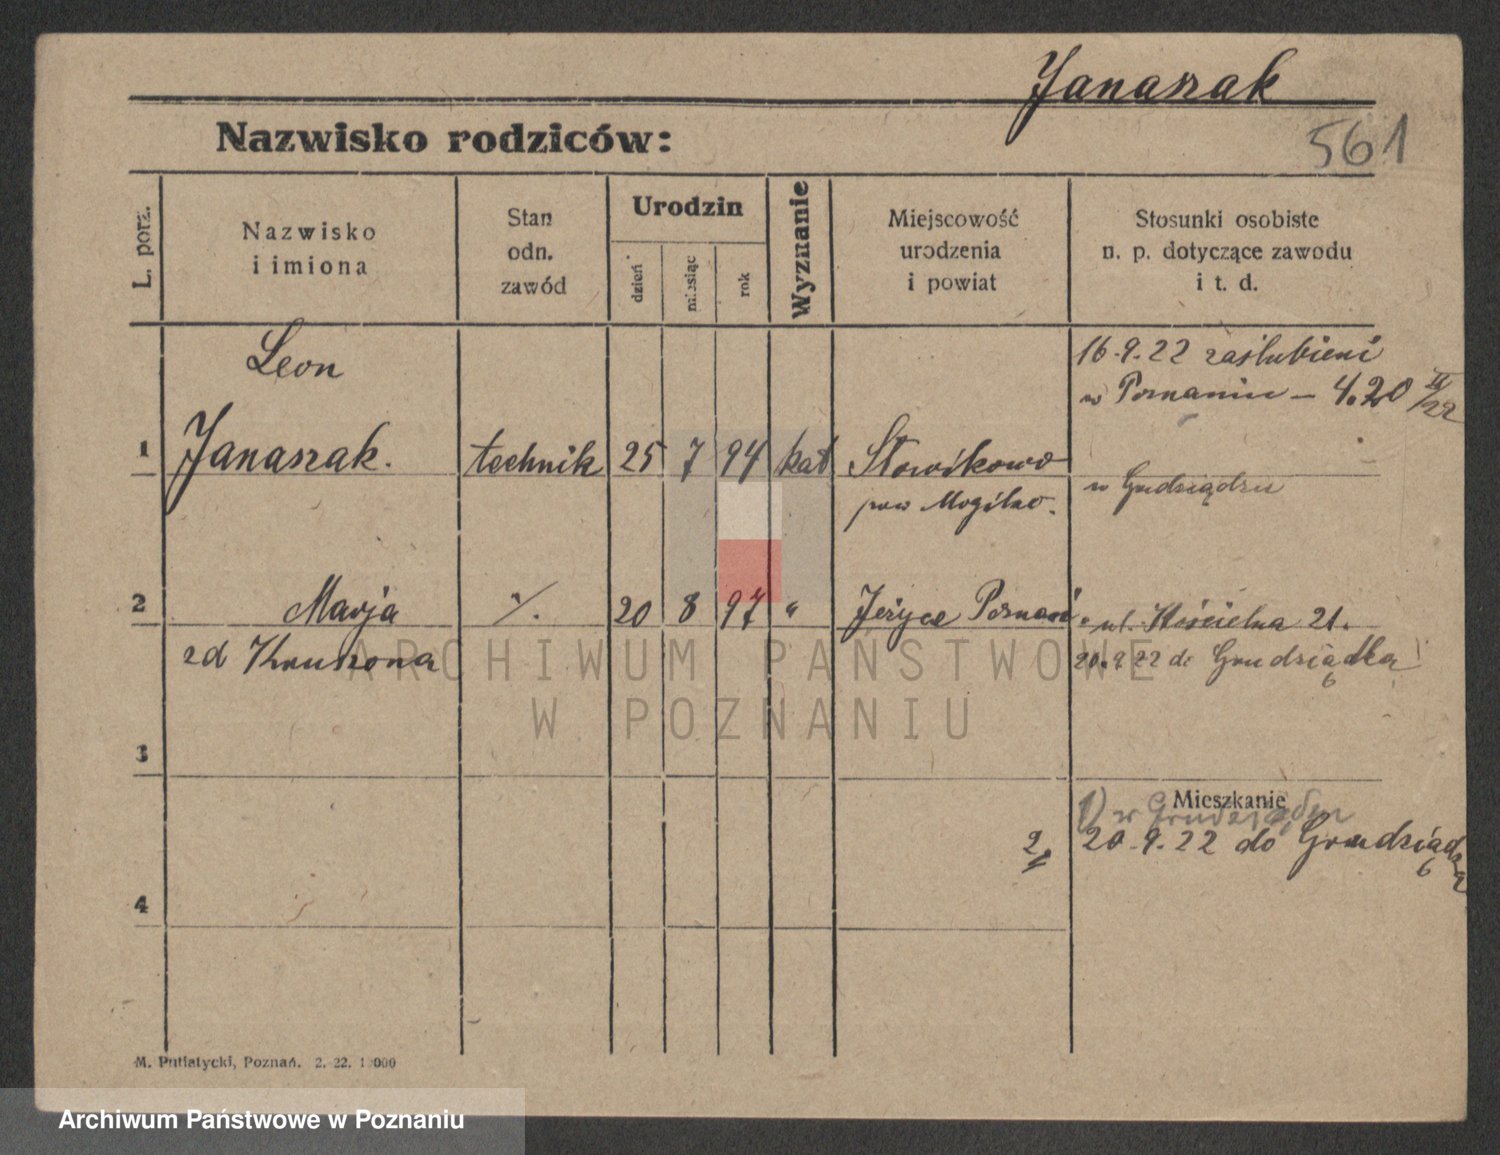 Janaszak
561
Nazwisko rodziców:
L. porz.
Nazwisko
i imiona
Stan
odn.
zawód
Urodzin
dzień
miesiąc
rok
Wyznanie
Miejscowość
urodzenia
i powiat
Stosunki osobiste
n. p. dotyczące zawodu
i t. d.
Leon
16.9.22 zaślubieni
w Poznaniu – 4.20 II/22
1 Janaszak. technik 25 7 94 kat Słowikowo
pow Mogilno.
w Grudziądzu
2 Marja ·/. 20 8 97 " Jeżyce Poznań ul. Kościelna 21.
zd 20.9.22 do Grudziądza
3
Mieszkanie
1) w Grudziądzu
2. 20.9.22 do Grudziądza
4
M. Putiatycki, Poznań. 2. 22.
ARCHIWUM PAŃSTWOWE
W POZNANIU
Archiwum Państwowe w Poznaniu